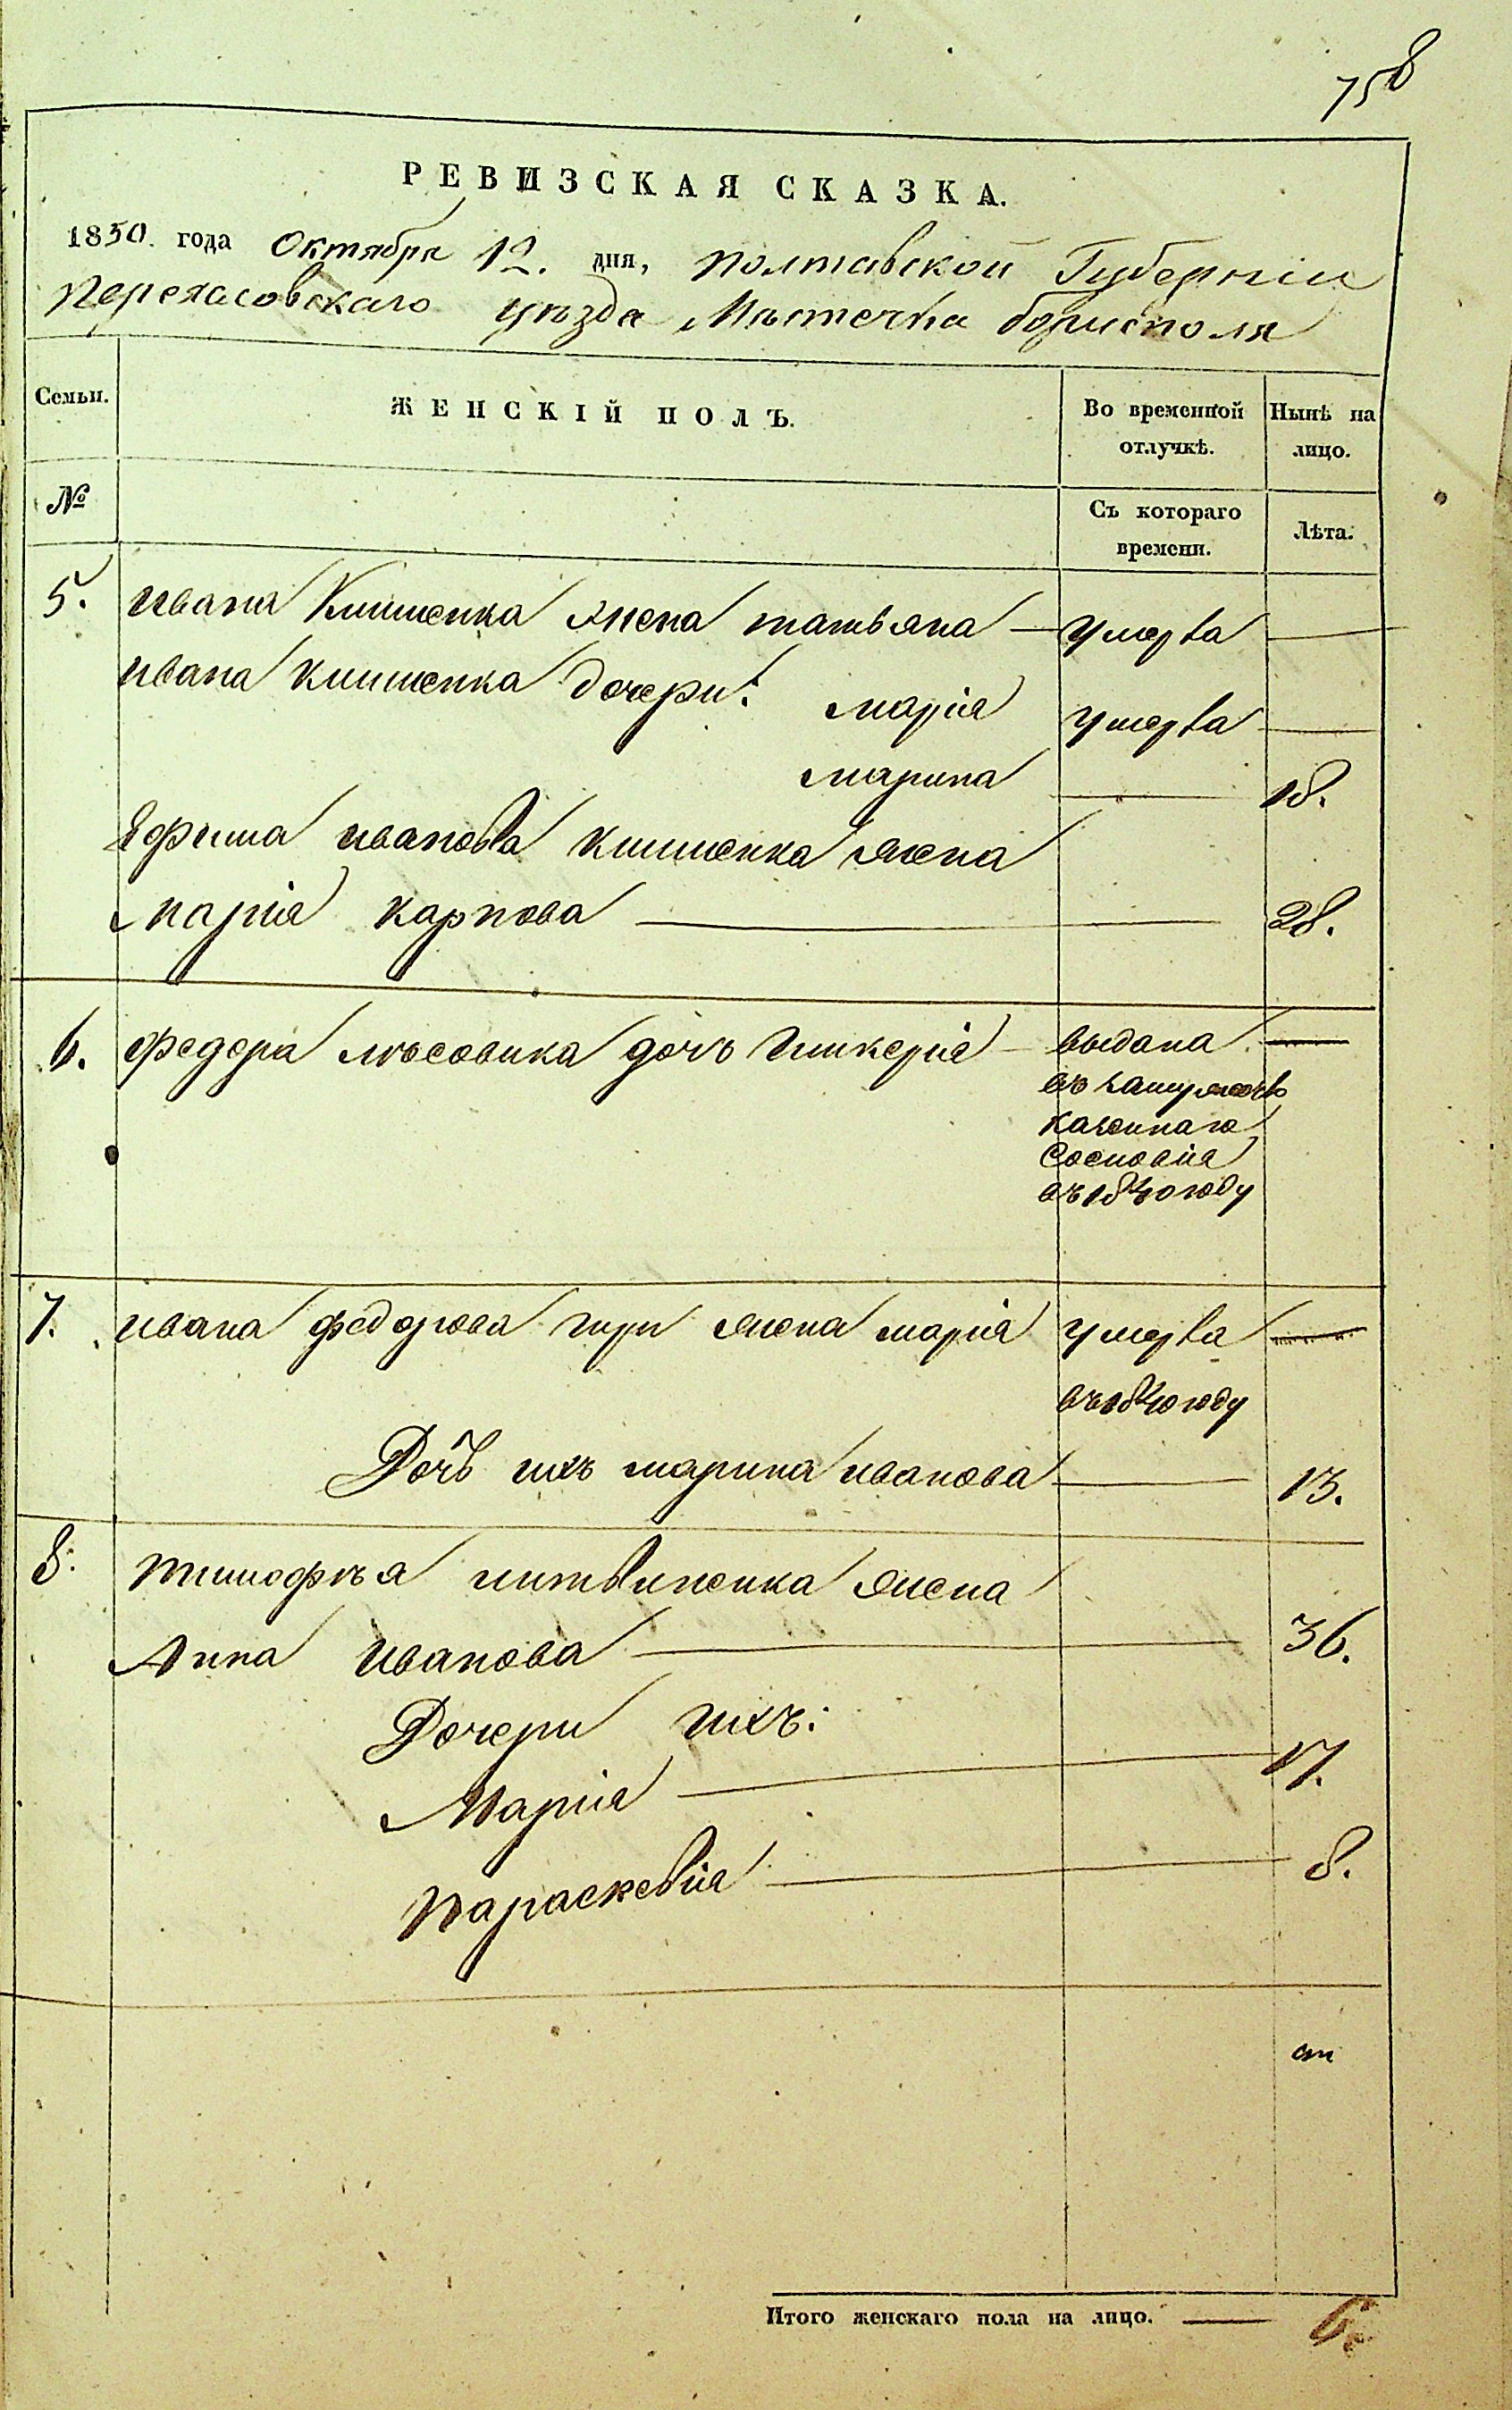 758
РЕВИЗСКАЯ СКАЗКА.
1850. года Октября 12. дня, Полтавской Губерніи
Переяславскаго уѣзда Мѣстечка Борисполя
Семьи. ЖЕНСКІЙ ПОЛЪ. Во временной отлучкѣ. Нынѣ на лицо.
№ Съ котораго времени. Лѣта.
5. Ивана Кишенка жена татьяна — умерва —
Ивана кишенка дочери: марія умерва —
марина — 18.
Ефима иванова кишенка жена
марія карпова — 28.
6. федора лѣсовика дочъ Гликерія — выдана —
въ замужство
казеннаго
Сословія
въ 1840 году
7. ивана федорова жена марія умерва —
въ 1840 году
Дочь ихъ марина иванова — 13.
8. тимофѣя литвиненка жена
Анна иванова — 36.
Дочери ихъ:
Марія — 17.
параскевія — 8.
Итого женскаго пола на лицо. — 6.